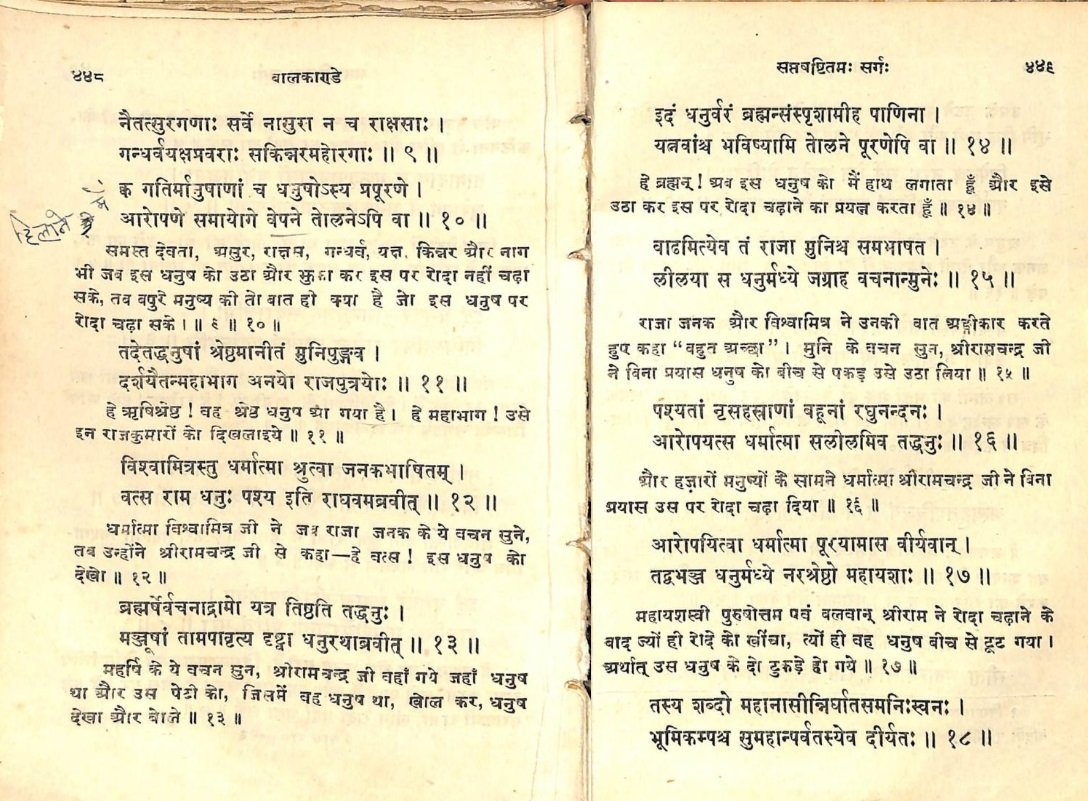 ४४८ बालकाण्डे
नैतत्सुरगणाः सर्वे नासुरा न च राक्षसाः ।
गन्धर्वयक्षप्रवराः सकिन्नरमहोरगाः ॥ ९ ॥
क्व गतिर्मानुषाणां च धनुषोऽस्य प्रपूरणे ।
हिलाने में
आरोपणे समायोगे वेपने तोलनेऽपि वा ॥ १० ॥
समस्त देवता, असुर, राक्षस, गन्धर्व, यक्ष, किन्नर और नाग
भी जब इस धनुष को उठा और झुका कर इस पर रोदा नहीं चढ़ा
सके, तब बपुरे मनुष्य की तो बात ही क्या है जो इस धनुष पर
रोदा चढ़ा सके । ॥ ९ ॥ १० ॥
तदेतद्धनुषां श्रेष्ठमानीतं मुनिपुङ्गव ।
दर्शयैतन्महाभाग अनयो राजपुत्रयोः ॥ ११ ॥
हे ऋषिश्रेष्ठ ! वह श्रेष्ठ धनुष आ गया है । हे महाभाग ! उसे
इन राजकुमारों को दिखलाइये ॥ ११ ॥
विश्वामित्रस्तु धर्मात्मा श्रुत्वा जनकभाषितम् ।
वत्स राम धनुः पश्य इति राघवमब्रवीत् ॥ १२ ॥
धर्मात्मा विश्वामित्र जी ने जब राजा जनक के ये वचन सुने,
तब उन्होंने श्रीरामचन्द्र जी से कहा—हे वत्स ! इस धनुष को
देखो ॥ १२ ॥
ब्रह्मर्षेर्वचनाद्रामो यत्र तिष्ठति तद्धनुः ।
मञ्जूषां तामपावृत्य दृष्ट्वा धनुरथाब्रवीत् ॥ १३ ॥
महर्षि के ये वचन सुन, श्रीरामचन्द्र जी वहाँ गये जहाँ धनुष
था और उस पेटी को, जिसमें वह धनुष था, खोल कर, धनुष
देखा और बोले ॥ १३ ॥
सप्तषष्टितमः सर्गः ४४९
इदं धनुर्वरं ब्रह्मन्संस्पृशामीह पाणिना ।
यत्नवांश्च भविष्यामि तोलने पूरणेपि वा ॥ १४ ॥
हे ब्रह्मन् ! अब इस धनुष को मैं हाथ लगाता हूँ और इसे
उठा कर इस पर रोदा चढ़ाने का प्रयत्न करता हूँ ॥ १४ ॥
बाढमित्येव तं राजा मुनिश्च समभाषत ।
लीलया स धनुर्मध्ये जग्राह वचनान्मुनेः ॥ १५ ॥
राजा जनक और विश्वामित्र ने उनकी बात अङ्गीकार करते
हुए कहा “बहुत अच्छा” । मुनि के वचन सुन, श्रीरामचन्द्र जी
ने बिना प्रयास धनुष को बीच से पकड़ उसे उठा लिया ॥ १५ ॥
पश्यतां नृसहस्राणां बहूनां रघुनन्दनः ।
आरोपयत्स धर्मात्मा सलीलमिव तद्धनुः ॥ १६ ॥
और हज़ारों मनुष्यों के सामने धर्मात्मा श्रीरामचन्द्र जी ने बिना
प्रयास उस पर रोदा चढ़ा दिया ॥ १६ ॥
आरोपयित्वा धर्मात्मा पूरयामास वीर्यवान् ।
तद्बभञ्ज धनुर्मध्ये नरश्रेष्ठो महायशाः ॥ १७ ॥
महायशस्वी पुरुषोत्तम एवं बलवान् श्रीराम ने रोदा चढ़ाने के
बाद ज्यों ही रोदे को खींचा, त्यों ही वह धनुष बीच से टूट गया ।
अर्थात् उस धनुष के दो टुकड़े हो गये ॥ १७ ॥
तस्य शब्दो महानासीन्निर्घातसमनिःस्वनः ।
भूमिकम्पश्च सुमहान्पर्वतस्येव दीर्यतः ॥ १८ ॥